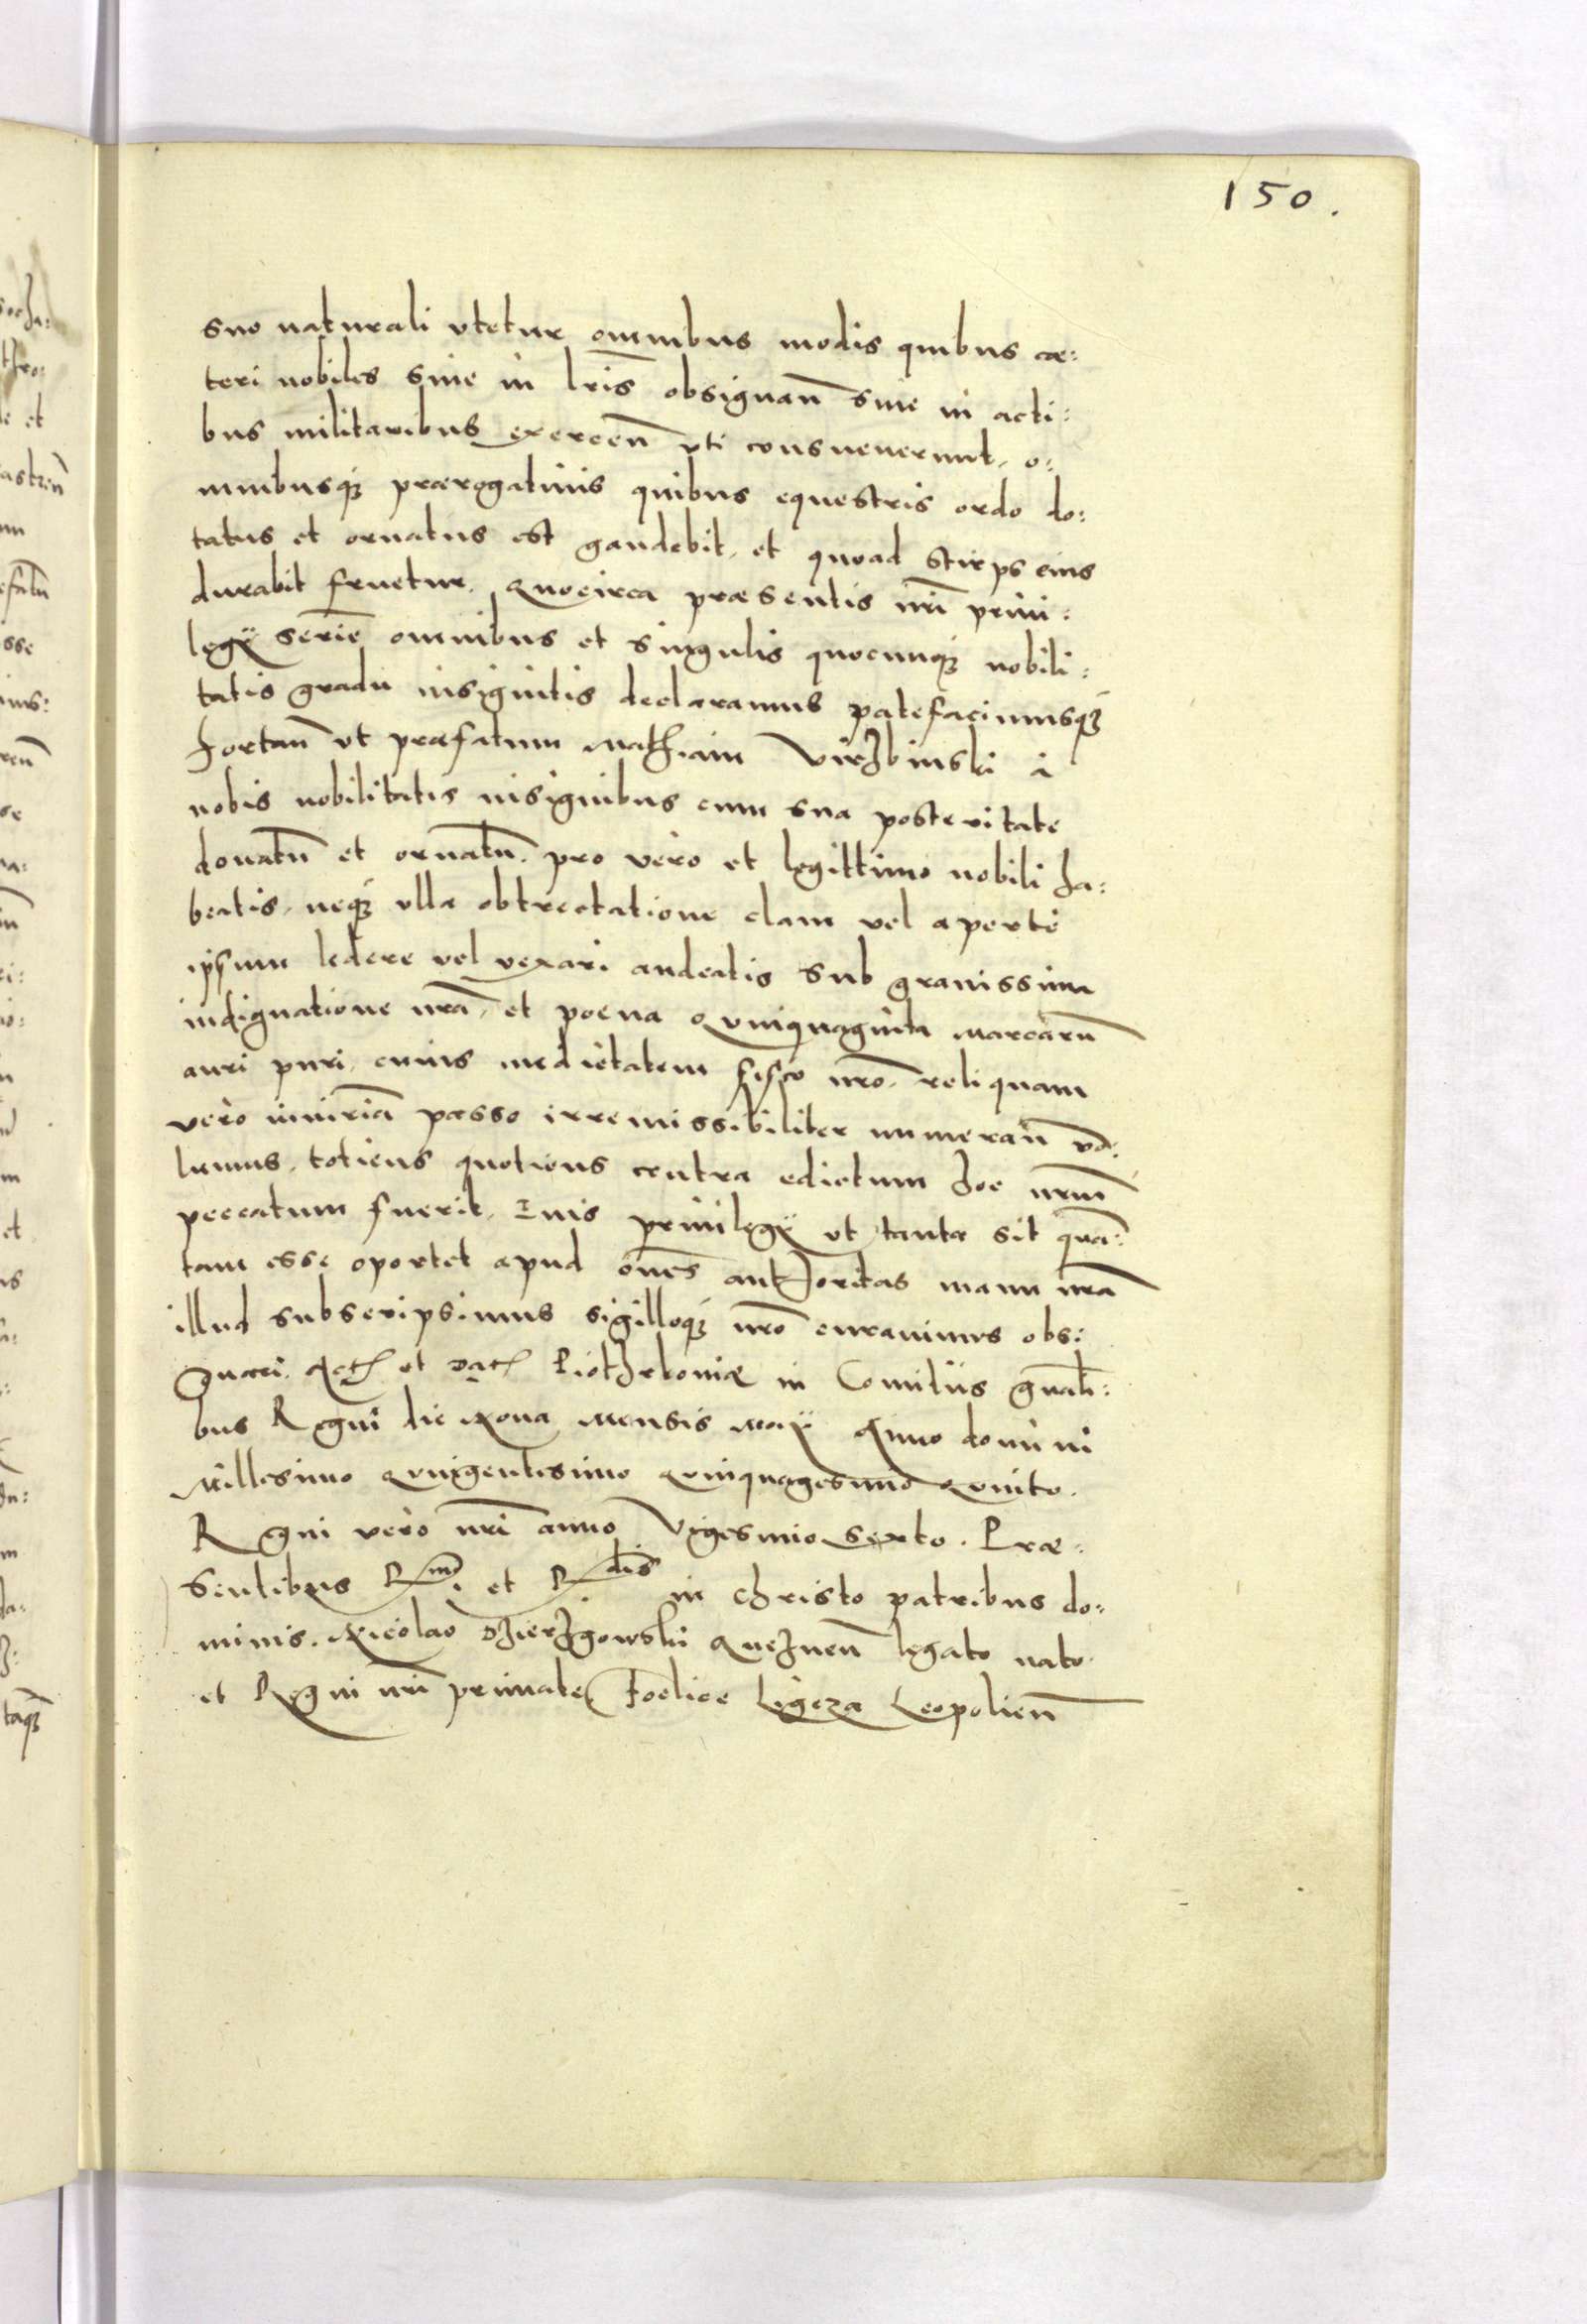 150.
suo naturali vtetur omnibus modis quibus cæ:
teri nobiles siue in lr̄is obsignan̄ siue in acti:
bus militaribus exercen̄ vti consueuerunt, o:
mnibusq3 prærogatiuis quibus equestris ordo do:
tatus et ornatus est gaudebit, et quoad stirps eius
durabit fruetur. Quocirca præsentis nr̄i priui:
legÿ seriē omnibus et singulis quocunq3 nobili:
tatis gradu insignitis declaramus patefacimusq3
hortan̄ vt præfatum Mathiam Virzbinski à
nobis nobilitatis insignibus cum sua posteritate
donatū et ornatū, pro vero et legittimo nobili ha:
beatis, neq3 vlla obtrectatione clam vel aperte
ipsum ledere vel vexari audeatis sub grauissima
indignatione nr̄a, et poena Quinquaginta Marcarū
auri puri, cuius medietatem fisco nr̄o, reliquam
vero iniuriā passo irremissibiliter numeran̄ vo:
lumus, totiens quotiens contra edictum hoc nr̄um
peccatum fuerit. Cuius priuilegÿ vt tanta sit quā:
tam esse oportet apud om̄es authoritas manu nr̄a
illud subscripsimus sigilloq3 nr̄o curauimus obsi
gnari. Act̄ et dat̄ Piothrkouiæ in Comitiis gnāli:
bus Regni die Nona Mensis Maÿ Anno domini
Millesimo Quingentesimo Quinquagesimo Quinto.
Regni vero nr̄i anno Vigesimo Sexto. Præ:
sentibus Rmi. et Rdis in Christo patribus do:
minis. Nicolao Dzierzgowski Gneznen̄ legato nato
et Regni nr̄i primate Foelice Ligeza Leopolien̄